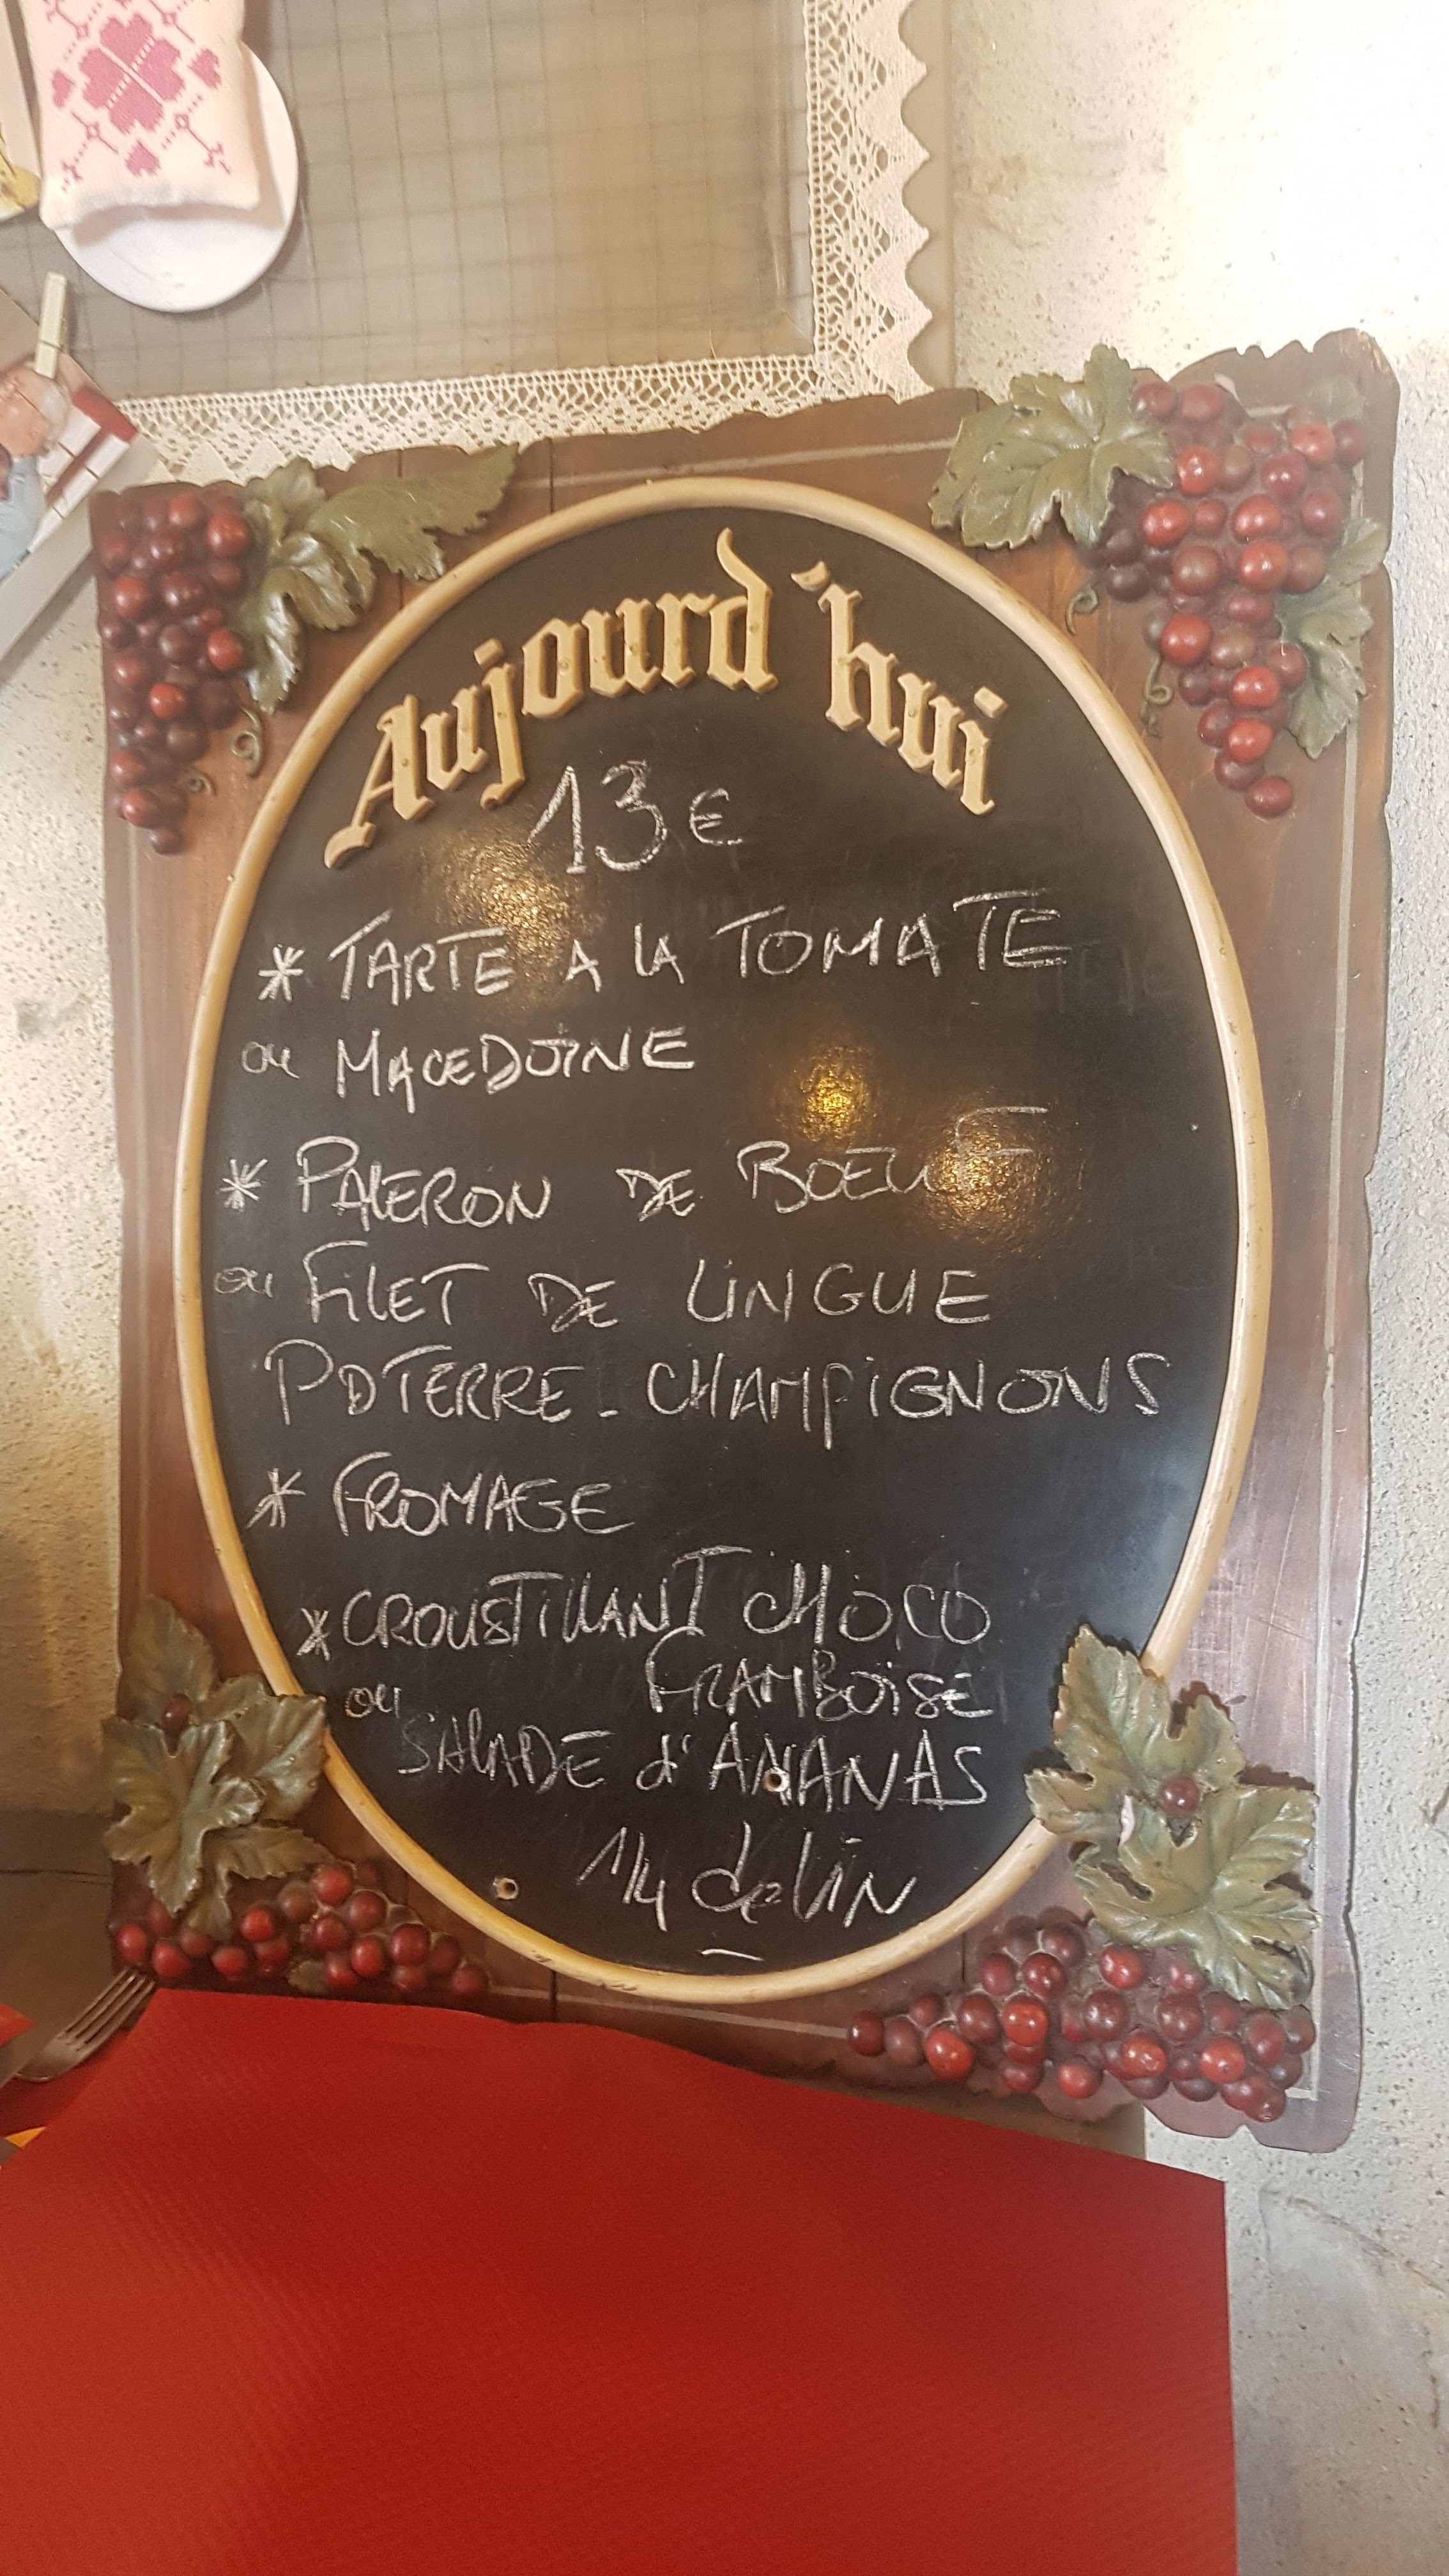 Aujourd'hui
13€
* TARTE A LA TOMATE
ou MACEDOINE
* PALERON DE BOEUF
ou FILET DE LINGUE
PDTERRE - CHAMPIGNONS
* FROMAGE
* CROUSTILLANT CHOCO
FRAMBOISE
ou SALADE d'ANANAS
1/4 de VIN